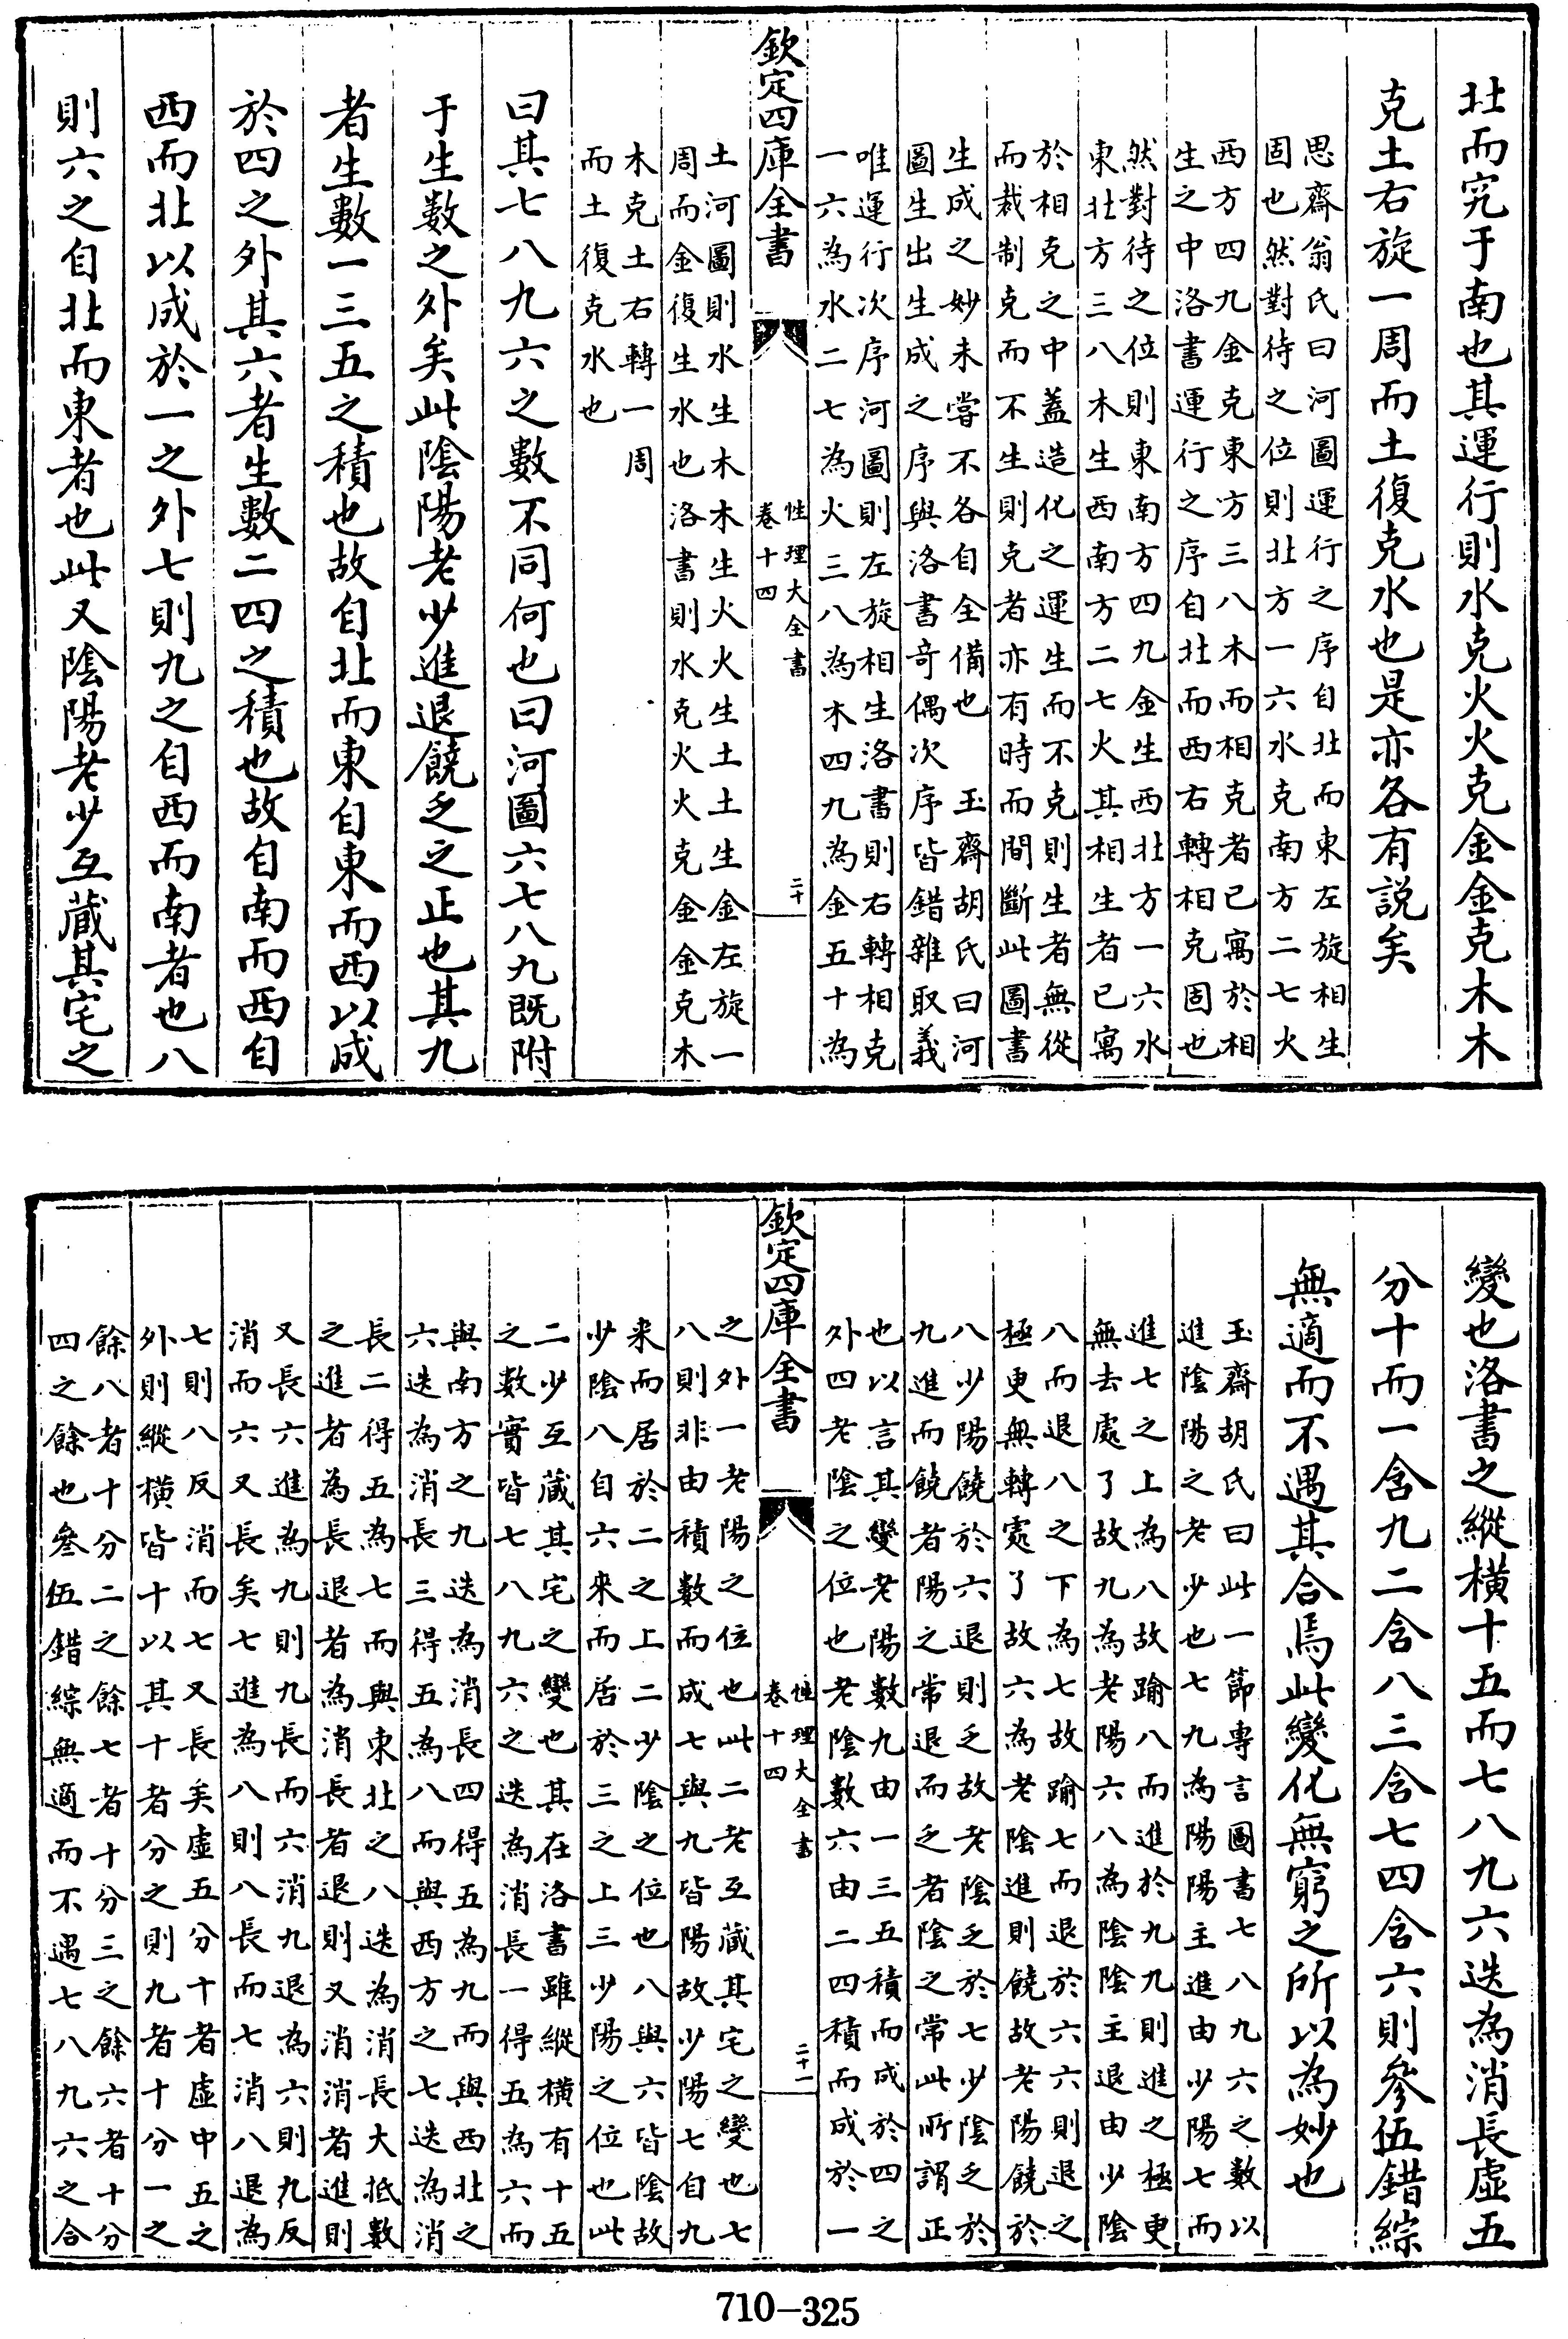 北而究于南也其運行則水克火火克金金克木木
克土右旋一周而土復克水也是亦各有説矣
思齋翁氏曰河圖運行之序自北而東左旋相生
固也然對待之位則北方一六水克南方二七火
西方四九金克東方三八木而相克者已寓於相
生之中洛書運行之序自北而西右轉相克固也
然對待之位則東南方四九金生西北方一六水
東北方三八木生西南方二七火其相生者已寓
於相克之中蓋造化之運生而不克則生者無從
而裁制克而不生則克者亦有時而間斷此圖書
生成之妙未嘗不各自全備也 玉齋胡氏曰河
圖生出生成之序與洛書奇偶次序皆錯雜取義
唯運行次序河圖則左旋相生洛書則右轉相克
一六為水二七為火三八為木四九為金五十為
欽定四庫全書
性理大全書
卷十四
二十
土河圖則水生木木生火火生土土生金金左旋一
周而金復生水也洛書則水克火火克金金克木
木克土右轉一周
而土復克水也
曰其七八九六之數不同何也曰河圖六七八九既附
于生數之外矣此陰陽老少進退饒乏之正也其九
者生數一三五之積也故自北而東自東而西以成
於四之外其六者生數二四之積也故自南而西自
西而北以成於一之外七則九之自西而南者也八
則六之自北而東者也此又陰陽老少互藏其宅之
變也洛書之縱横十五而七八九六迭為消長虛五
分十而一含九二含八三含七四含六則參伍錯綜
無適而不遇其合焉此變化無窮之所以為妙也
玉齋胡氏曰此一節專言圖書七八九六之數以
進陰陽之老少也七九為陽陽主進由少陽七而
進七之上為八故踰八而進於九九則進之極更
無去處了故九為老陽六八為陰陰主退由少陰
八而退八之下為七故踰七而退於六六則退之
極更無轉處了故六為老陰進則饒故老陽饒於
八少陽饒於六退則乏故老陰乏於七少陰乏於
九進而饒者陽之常退而乏者陰之常此所謂正
也以言其變老陽數九由一三五積而成於四之
外四老陰之位也老陰數六由二四積而成於一
欽定四庫全書
性理大全書
卷十四
二十一
之外一老陽之位也此二老互藏其宅之變也七
八則非由積數而成七與九皆陽故少陽七自九
来而居於二之上二少陰之位也八與六皆陰故
少陰八自六來而居於三之上三少陽之位也此
二少互藏其宅之變也其在洛書雖縱横有十五
之數實皆七八九六之迭為消長一得五為六而
與南方之九迭為消長四得五為九而與西北之
六迭為消長三得五為八而與西方之七迭為消
長二得五為七而與東北之八迭為消長大抵數
之進者為長退者為消長者退則又消消者進則
又長六進為九則九長而六消九退為六則九反
消而六又長矣七進為八則八長而七消八退為
七則八反消而七又長矣虛五分十者虛中五之
外則縱横皆十以其十者分之則九者十分一之
餘八者十分二之餘七者十分三之餘六者十分
四之餘也參伍錯綜無適而不遇七八九六之合
710-325